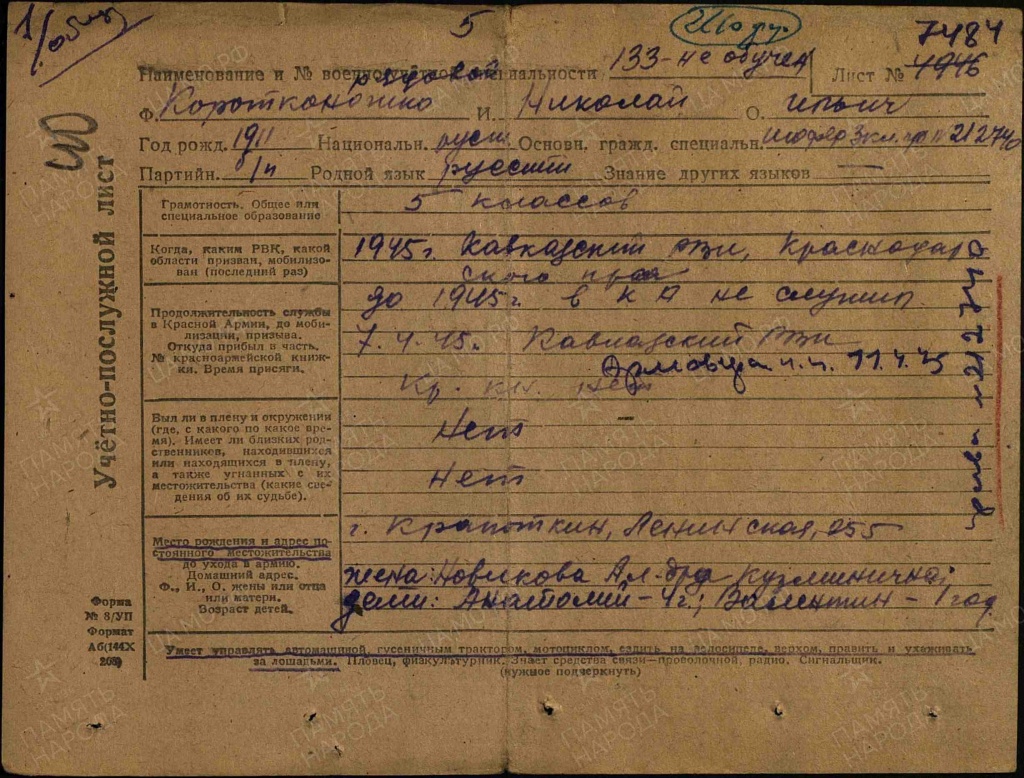 5
7484
Наименование и № военно-учётной специальности 133-не обучен Лист № 4946
рядовой
Ф. Коротконожко И. Николай О. Ильич
Год рожд. 1911 Национальн. русск. Основн. гражд. специальн. шофер 3 кл. пр № 212740
Партийн. б/п Родной язык русский Знание других языков —
Учётно-послужной лист
Грамотность. Общее или
специальное образование
5 классов
Когда, каким РВК, какой
области призван, мобилизо-
ван (последний раз)
1945г. Кавказский РВК, Краснодар
ского края
Продолжительность службы
в Красной Армии, до моби-
лизации, призыва.
Откуда прибыл в часть.
№ красноармейской книж-
ки. Время присяги.
до 1945г. в КА не служил
7.4.45г. Кавказский РВК
Армовира п.п. 11.4.45
Кр. кн. нет
Был ли в плену и окружении
(где, с какого по какое вре-
мя). Имеет ли близких род-
ственников, находившихся
или находящихся в плену,
а также угнанных с их
местожительства (какие све-
дения об их судьбе).
Нет
Нет
Место рождения и адрес по-
стоянного местожительства
до ухода в армию.
Домашний адрес.
Ф., И., О. жены или отца
или матери.
Возраст детей.
г. Крапоткин, Ленинская, 255
жена: Новикова Ал-дра Кузминична;
дети: Анатолий – 4 г.; Валентин – 1 год.
права № 212740
Форма
№ 8/УП
Формат
А6(144X
203)
Умеет управлять автомашиной, гусеничным трактором, мотоциклом, ездить на велосипеде, верхом, править и ухаживать
за лошадьми. Пловец, физкультурник. Знает средства связи—проволочной, радио. Сигнальщик.
(нужное подчеркнуть)